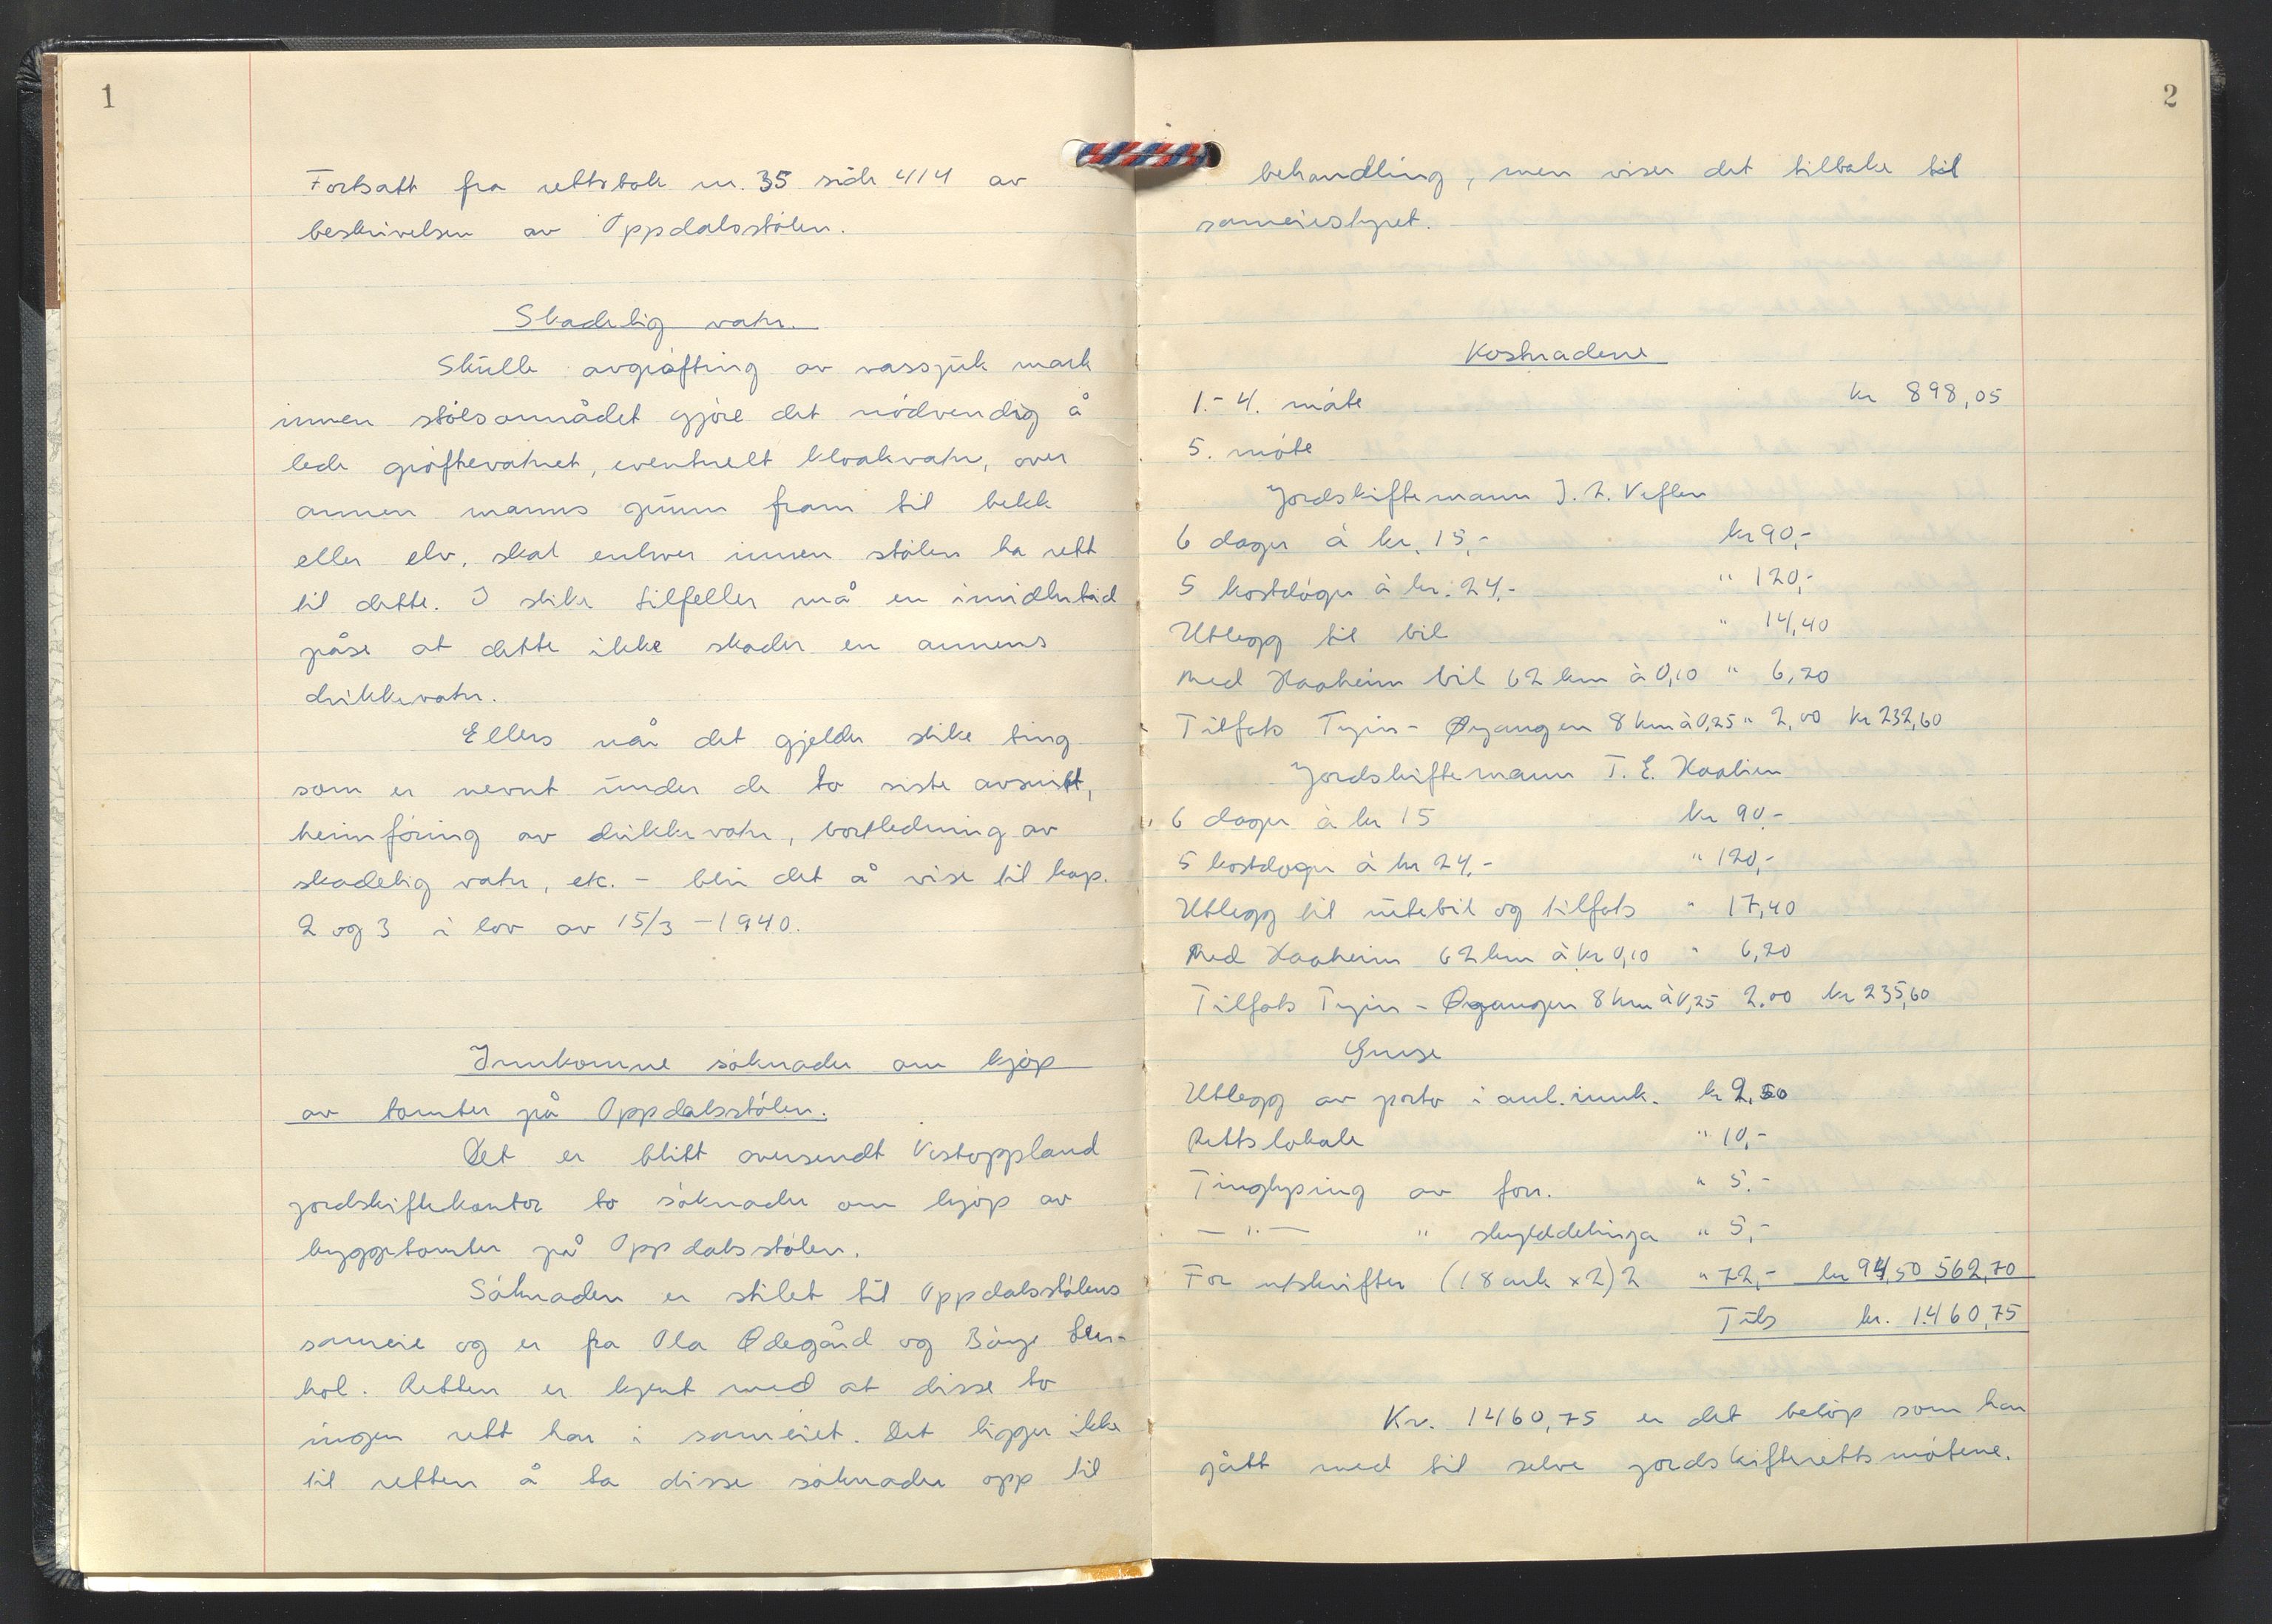 1
Fortsatt fra rettsbok nr. 35 side 414 av
beskrivelsen av Oppdalsstölen.
Skadelig vatn.
Skulle avgröfting av vassjuk mark
innen stölsområdet gjöre det nödvendig å
lede gröftevatnet, eventuelt kloakvatn, over
annen manns grunn fram til bekk
eller elv, skal enhver innen stölen ha rett
til dette. I slike tilfeller må en imidlertid
påse at dette ikke skader en annens
drikkevatn.
Ellers når det gjelder slike ting
som er nevnt under de to siste avsnitt,
heimföring av drikkevatn, bortledning av
skadelig vatn, etc. - blir det å vise til kap.
2 og 3 i lov av 15/3 - 1940.
Innkomne söknader om kjöp
av tomter på Oppdalsstölen.
Det er blitt oversendt Vestoppland
jordskiftekontor to söknader om kjöp av
byggetomter på Oppdalsstölen.
Söknaden er stilet til Oppdalsstölens
sameie og er fra Ola Ødegård og Börge
hol. Retten er kjent med at disse to
ingen rett har i sameiet. Det ligger ikke
til retten å ta disse söknader opp til
2
behandling, men viser det tilbake til
sameiestyret.
Kostnadene
1.- 4. möte kr 898,05
5. möte
Jordskiftemann J. L. Veflen
6 dager à kr. 15,- kr 90,-
5 kostdöger à kr. 24,- " 120,-
Utlegg til bil " 14,40
Med Haaheim bil 62 km à 0,10 " 6,20
Tilfots Tyin - Øyangen 8 km à 0,25 " 2,00 kr 232,60
Jordskiftemann T. E. Haalien
6 dager à kr 15 kr 90,-
5 kostdoger à kr 24,- " 120,-
Utlegg til rutebil og tilfots " 17,40
Med Haaheim 62 km à kr 0,10 " 6,20
Tilfots Tyin - Øyangen 8 km à 0,25 2.00 kr 235,60
Ymse
Utlegg av porto i anl. innk. kr 2,50
Rettslokale " 10,-
Tinglysing av forr. " 5.-
— " — " skylddelinga " 5,-
For utskrifter (18 ark x 2) 2 " 72,- kr 94,50 562,70
Tils kr. 1460,75
Kr. 1460,75 er det belöp som har
gått med til selve jordskifterettsmötene.